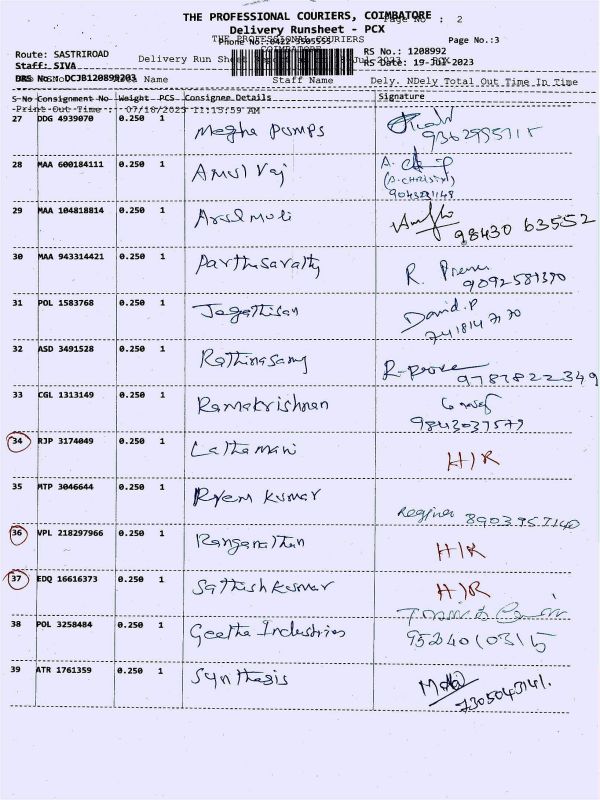 THE PROFESSIONAL COURIERS, COIMBATORE
Page No : 2
Delivery Runsheet - PCX
THE PROFESSIONAL COURIERS
Page No.:3
COIMBATORE
Route: SASTRIROAD
RS No.: 1208992
Staff: SIVA
Delivery Run Sheet
RS Date: 19-Jul-2023
DRS No.: DCJB120899203
Name
Staff Name
Dely. NDely Total Out Time In Time
S-No Consignment No Weight PCS Consignee Details Signature
Print Out Time : 07/18/2023 11:15:59 AM
27 DDG 4939070 0.250 1 Megha Pumps
9362995715
28 MAA 600184111 0.250 1 Amul Raj A.
(A.CHRISTY)
29 MAA 104818814 0.250 1 Arul Muli
98430 63552
30 MAA 943314421 0.250 1 Parthasarathy R. Prema
31 POL 1583768 0.250 1 Jagathisan David.P
32 ASD 3491528 0.250 1 Rathinasamy
9787822349
33 CGL 1313149 0.250 1 Ramakrishnan
9843037579
34 RJP 3174049 0.250 1 Lathamani H/R
35 MTP 3046644 0.250 1 Prem Kumar
8903957140
36 VPL 218297966 0.250 1 Ranganathan H/R
37 EDQ 16616373 0.250 1 Sathishkumar H/R
38 POL 3258484 0.250 1 Geetha Industries
9524010315
39 ATR 1761359 0.250 1 Synthesis
7305043141.